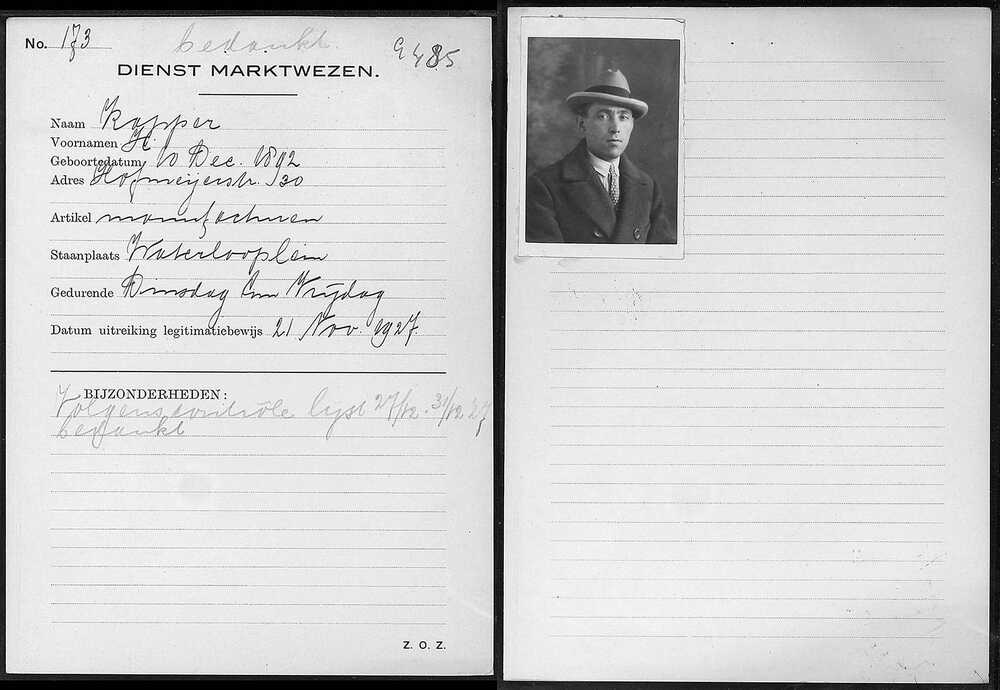 No. 173 bedankt. G 485
DIENST MARKTWEZEN.
Naam Kopper
Voornamen H.
Geboortedatum 10 Dec. 1892
Adres Hofmeijerstr. 30
Artikel manufacturen
Staanplaats Waterlooplein
Gedurende Dinsdag t/m Vrijdag
Datum uitreiking legitimatiebewijs 21 Nov. 1927.
BIJZONDERHEDEN:
Volgens contrôle lijst 27/12 - 31/12 27
bedankt
Z. O. Z.